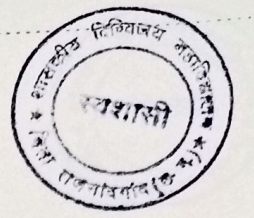 शासकीय दिग्विजय महाविद्यालय
स्वशासी
★ जिला राजनांदगांव (छ.ग.) ★